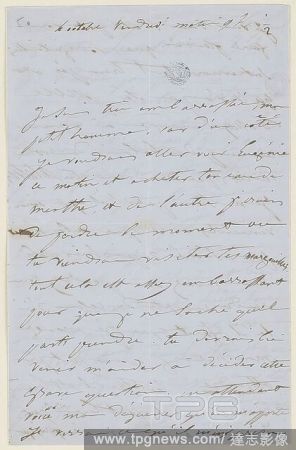 6 octobre vendredi matin 9h ½
Je suis très embarrassée mon
petit homme, car d'un côté
je voudrais aller voir Eugénie
ce matin et acheter ton eau de
menthe et de l'autre je crains
de perdre le moment où
tu viendras visiter tes
tout cela est assez embarrassant
pour que je ne sache quel
parti prendre. tu devrais bien
venir m'aider à décider cette
grave question en attendant
voici ma
je
TPG
www.tpgnews.com 達志影像